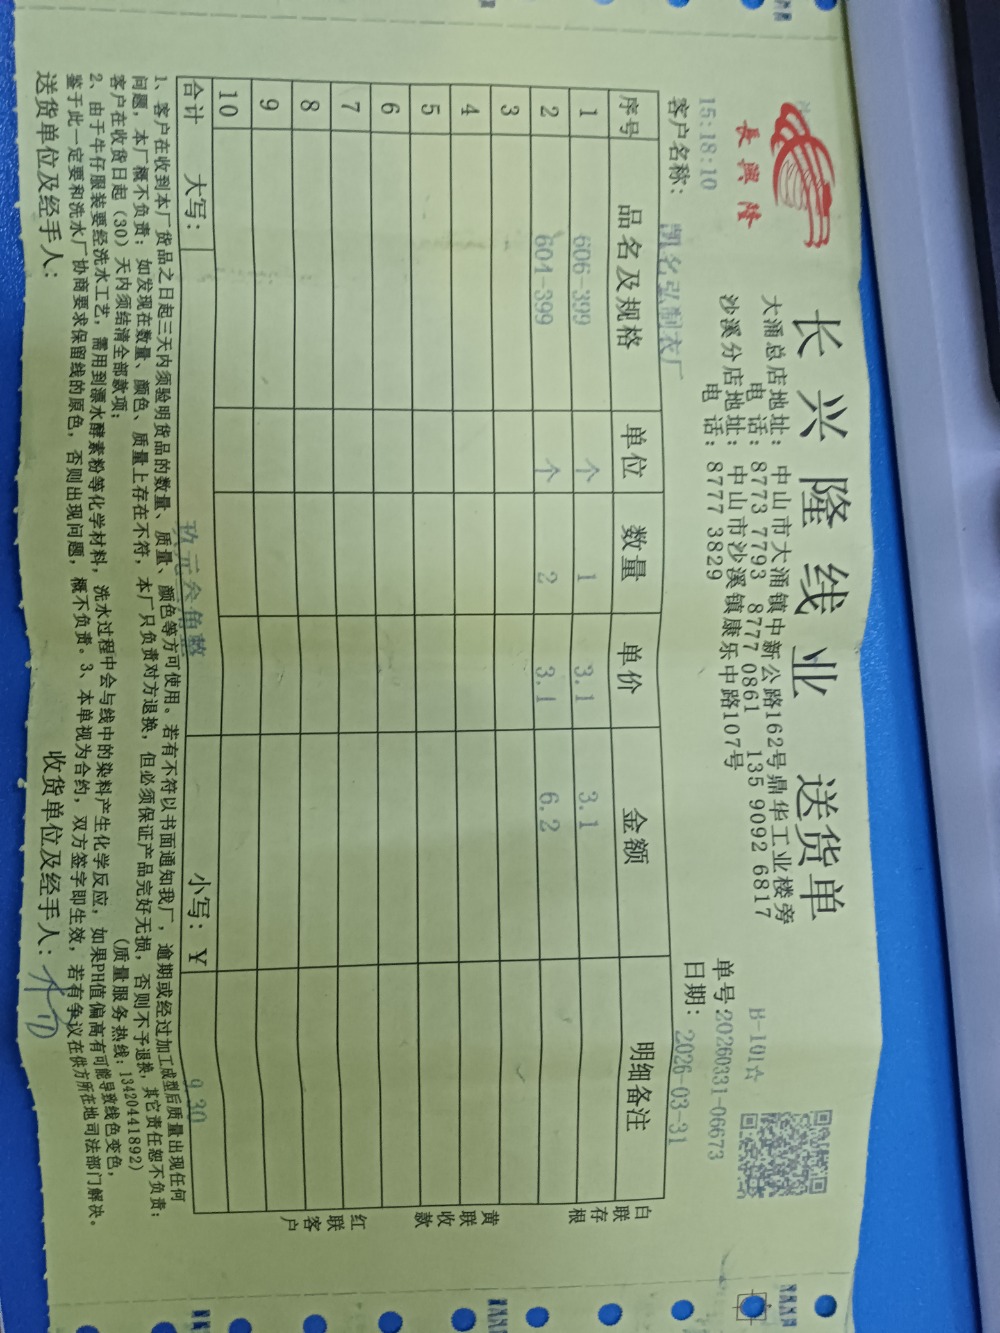 長興隆
长兴隆线业 送货单
大涌总店地址：中山市大涌镇中新公路162号鼎华工业楼旁
电 话：8773 7793 8777 0861 135 9092 6817
沙溪分店地址：中山市沙溪镇康乐中路107号
电 话：8777 3829
B-101☆
单号:20260331-06673
日期：2026-03-31
15:18:10
客户名称：凯名弘制衣厂
序号 品名及规格 单位 数量 单价 金额 明细备注
1 606-399 个 1 3.1 3.1
2 604-399 个 2 3.1 6.2
3
4
5
6
7
8
9
10
合计 大写：玖元叁角整 小写：¥ 9.30
白联存根
黄联收款
红联客户
1、客户在收到本厂货品之日起三天内须验明货品的数量、质量、颜色等方可使用。若有不符以书面通知我厂，逾期或经过加工成型后质量出现任何
问题，本厂概不负责；如发现在数量、颜色、质量上存在不符，本厂只负责对方退换，但必须保证产品完好无损，否则不予退换，其它责任恕不负责；
客户在收货日起（30）天内须结清全部款项；（质量服务热线：13420441892）
2、由于牛仔服装要经洗水工艺，需用到漂水酵素粉等化学材料，洗水过程中会与线中的染料产生化学反应，如果PH值偏高有可能导致线色变色，
鉴于此一定要和洗水厂协商要求保留线的原色，否则出现问题，概不负责。3、本单视为合约，双方签字即生效，若有争议在供方所在地司法部门解决。
送货单位及经手人： 收货单位及经手人：